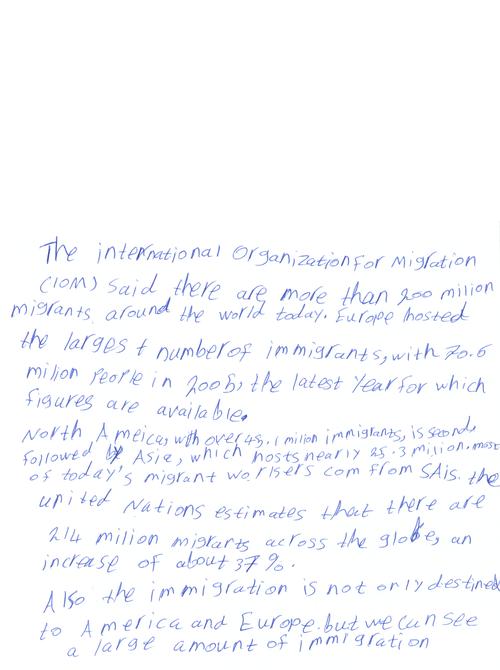 The international Organization for Migration
(IOM) said there are more than 200 milion
migrants around the world today. Europe hosted
the largest number of immigrants, with 70.6
milion people in 2005, the latest year for which
figures are available.
North Ameica, with over 45.1 milion immigrants, is second,
followed by Asia, which hosts nearly 25.3 milion. most
of today's migrant workers com from SAis. the
united Nations estimates that there are
214 milion migrants across the globe, an
increase of about 37%.
Also the immigration is not only destined
to America and Europe. but we can see
a large amount of immigration